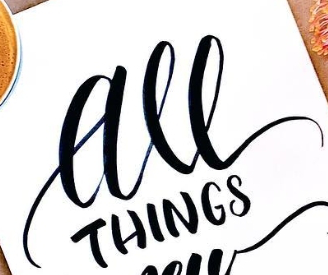 all
THINGS